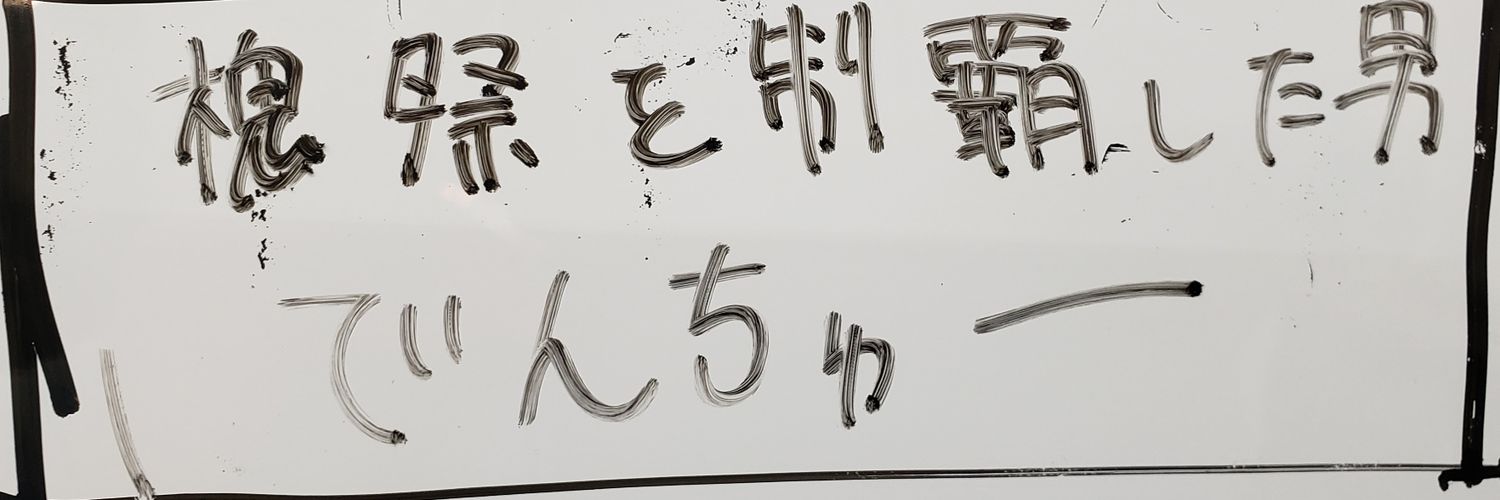 槐祭を制覇した男
でんちゅー